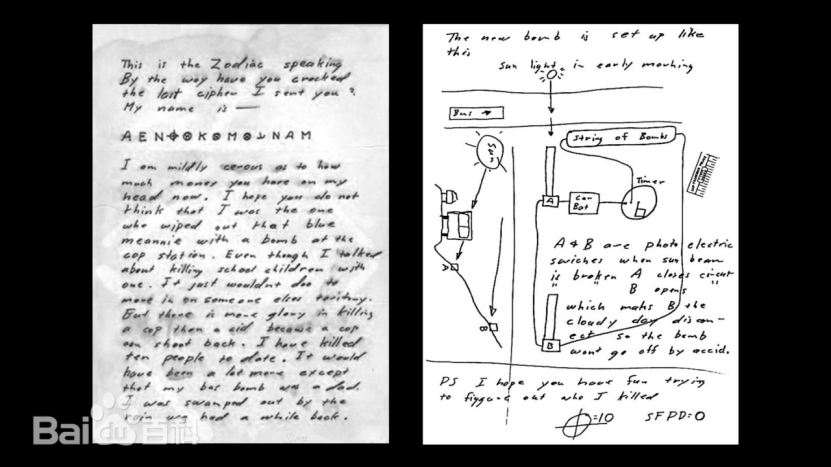 This is the Zodiac speaking
By the way have you cracked
the last cipher I sent you?
My name is —
A E N K M N A M
I am mildly cerous as to how
much money you have on my
head now. I hope you do not
think that I was the one
who wiped out that blue
meannie with a bomb at the
cop station. Even though I talked
about killing school children with
one. It just wouldnt doo to
move in on someone elses teritory.
But there is more glory in killing
a cop than a cid because a cop
can shoot back. I have killed
ten people to date. It would
have been a lot more except
that my bus bomb was a dud.
I was swamped out by the
rain we had a while back.
The new bomb is set up like
this
Sun light in early morning
Bus →
String of Bombs
Sun
Timer
A
Car
Bat
A & B are photo electric
swiches when sun beam
is broken A closes circut
" " B opens
which maks B the
cloudy day discon-
ect so the bomb
wont go off by accid.
A
B
B
PS I hope you have fun trying
to figgure out who I killed
=10 SFPD=0
Baidu百科